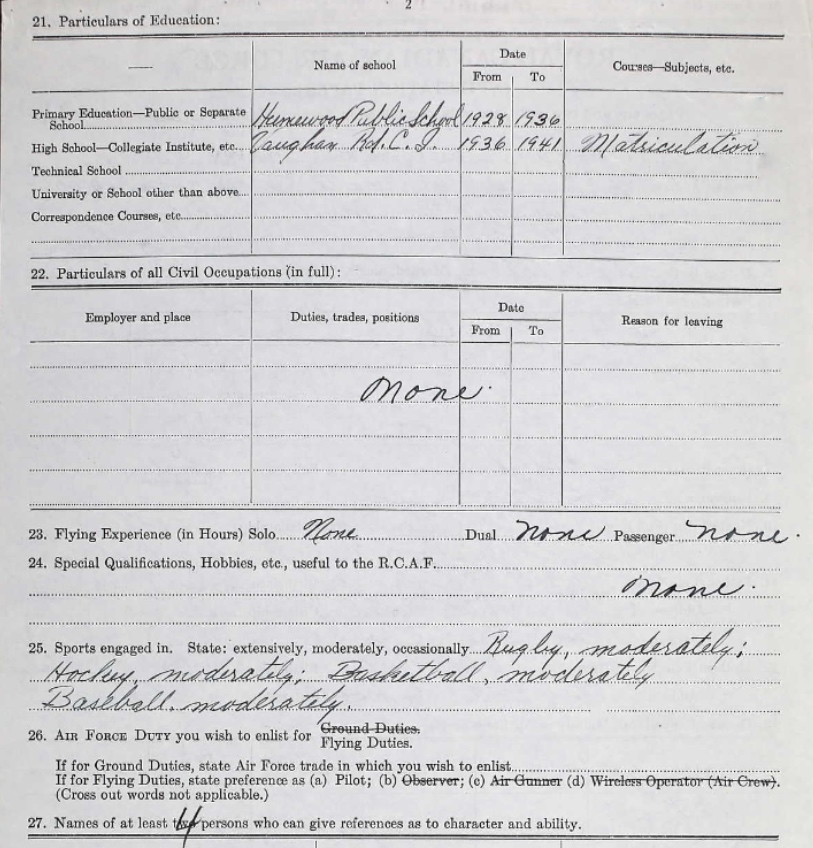 2
21. Particulars of Education:
Name of school Date Courses—Subjects, etc.
From To
Primary Education—Public or Separate
School Humewood Public School 1928 1936
High School—Collegiate Institute, etc. Vaughan Rd. C. I. 1936 1941 Matriculation
Technical School
University or School other than above
Correspondence Courses, etc.
22. Particulars of all Civil Occupations (in full):
Employer and place Duties, trades, positions Date Reason for leaving
From To
None.
23. Flying Experience (in Hours) Solo None Dual None Passenger None.
24. Special Qualifications, Hobbies, etc., useful to the R.C.A.F.
None.
25. Sports engaged in. State: extensively, moderately, occasionally Rugby, moderately;
Hockey, moderately; Basketball, moderately
Baseball, moderately.
26. AIR FORCE DUTY you wish to enlist for Ground Duties.
Flying Duties.
If for Ground Duties, state Air Force trade in which you wish to enlist
If for Flying Duties, state preference as (a) Pilot; (b) Observer; (c) Air Gunner (d) Wireless Operator (Air Crew).
(Cross out words not applicable.)
27. Names of at least 4 persons who can give references as to character and ability.